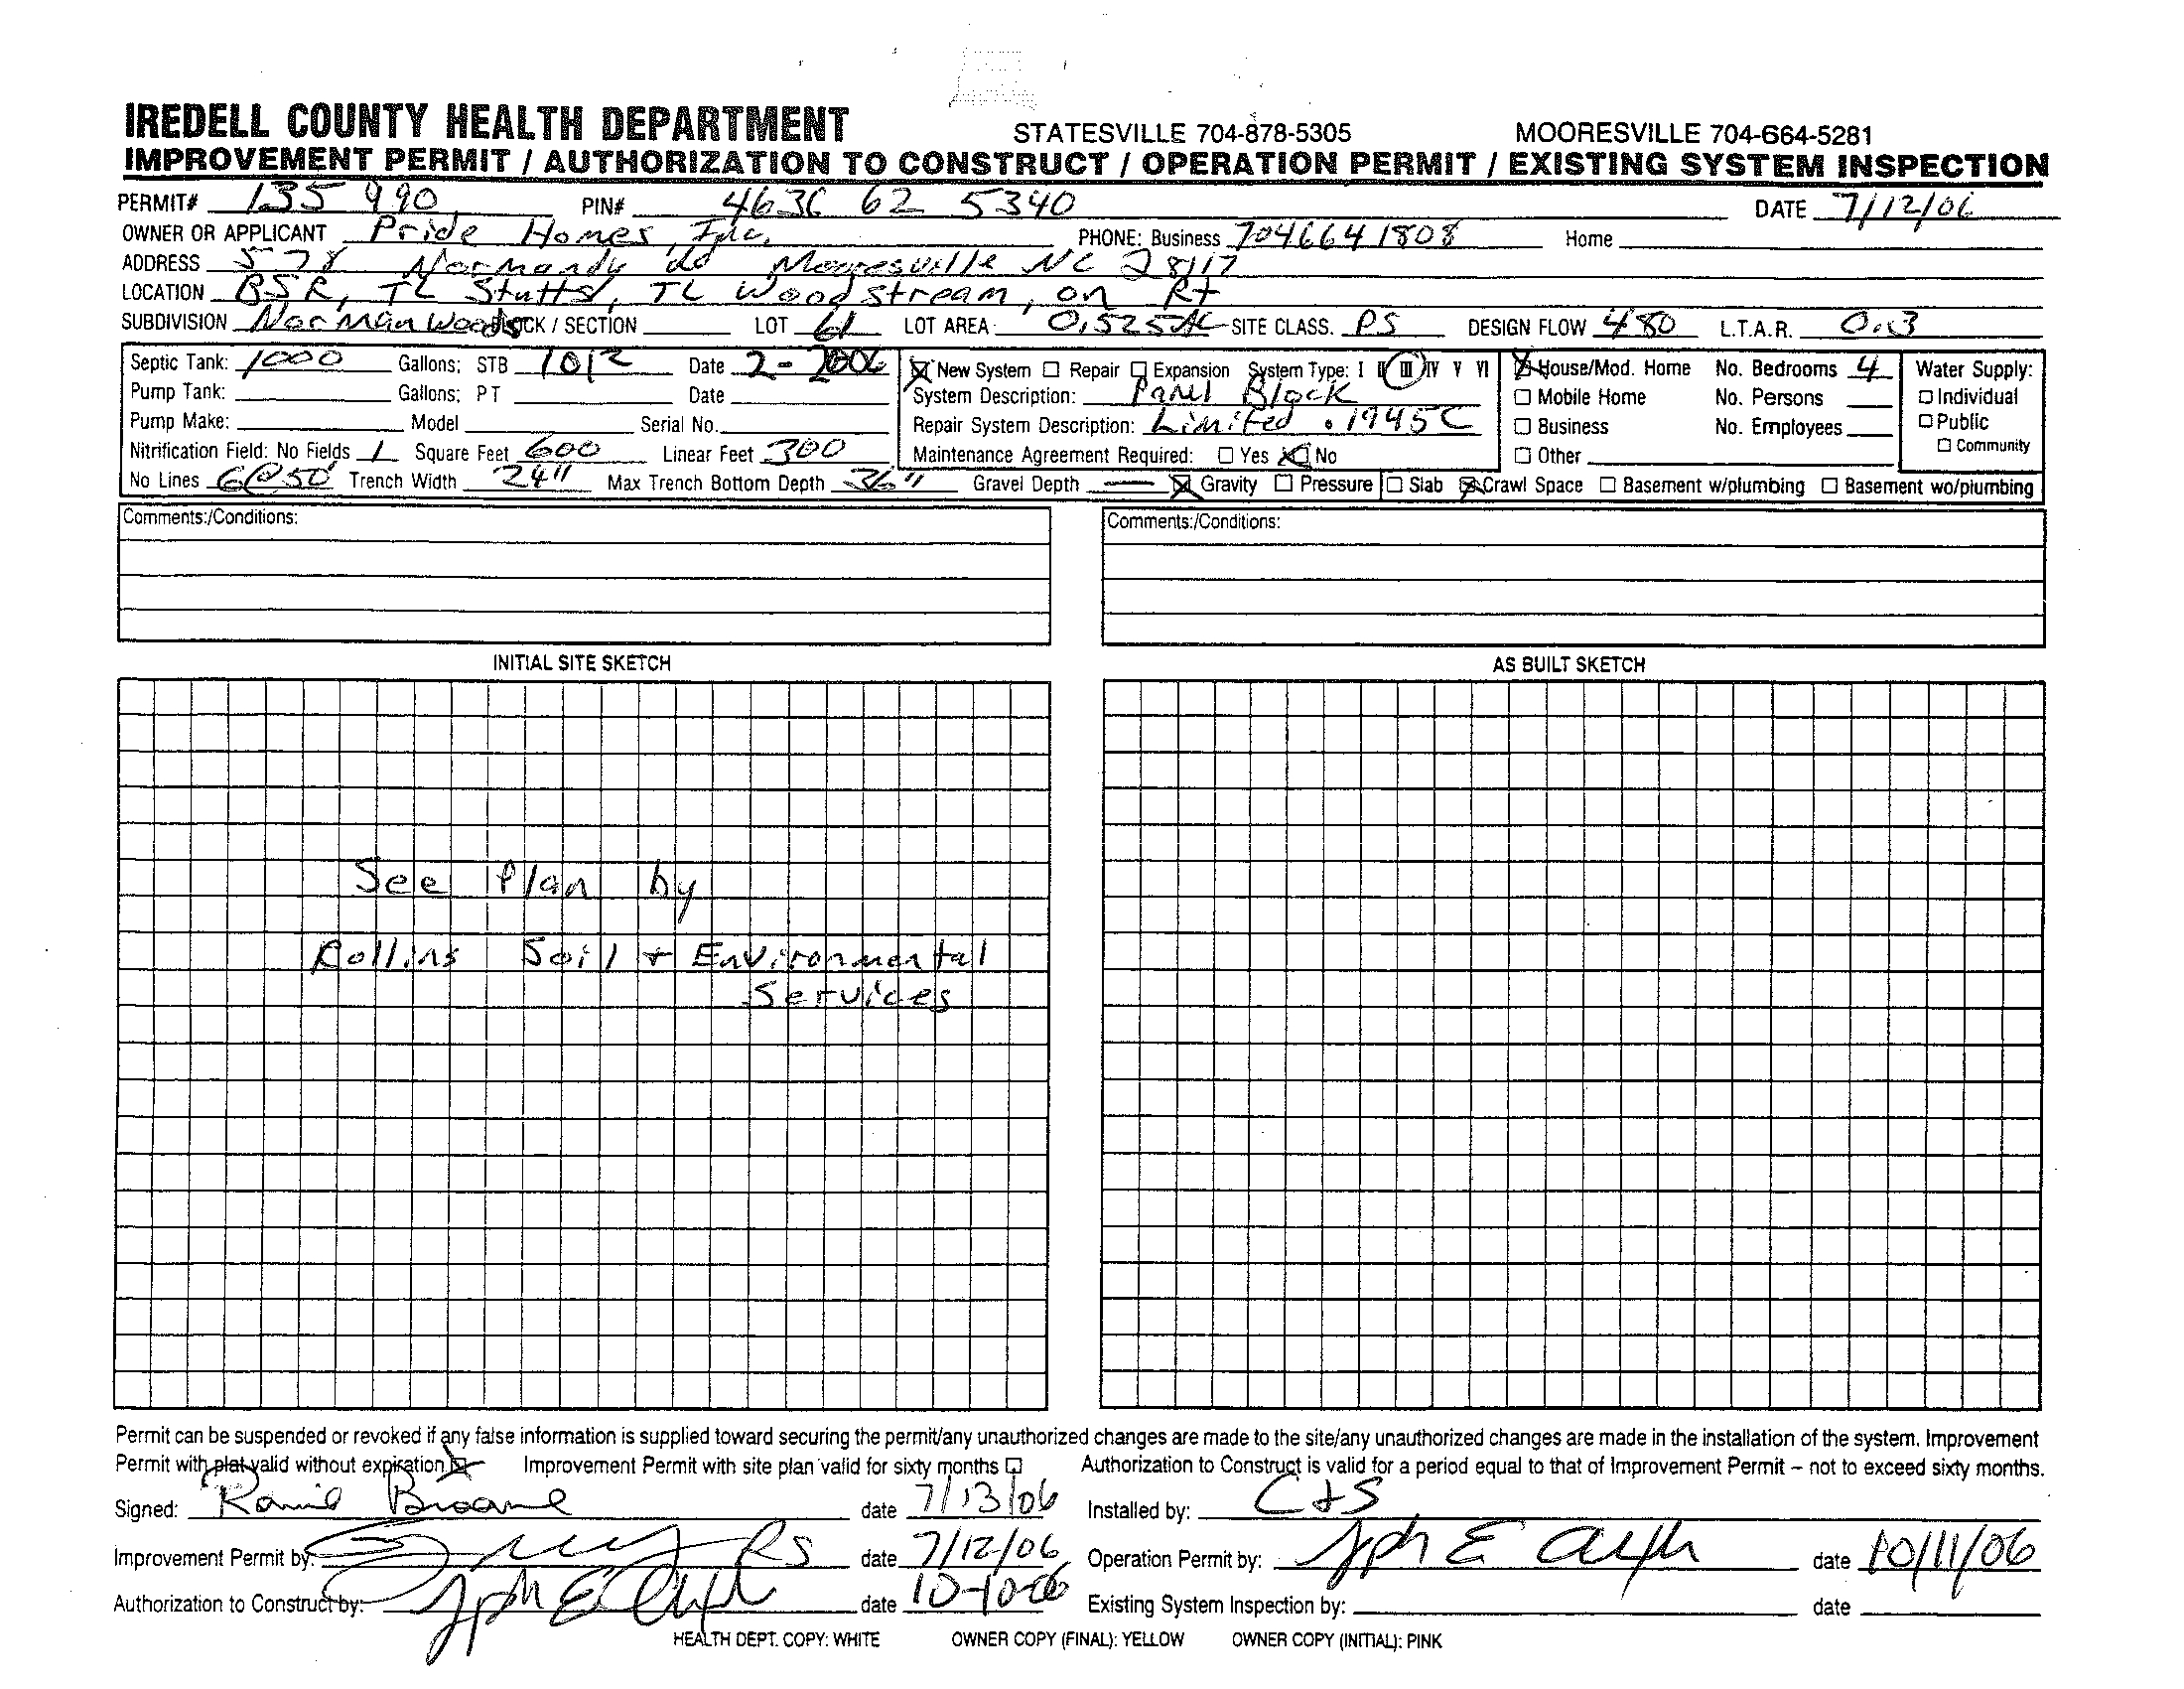 IREDELL COUNTY HEALTH DEPARTMENT STATESVILLE 704-878-5305 MOORESVILLE 704-664-5281
IMPROVEMENT PERMIT / AUTHORIZATION TO CONSTRUCT / OPERATION PERMIT / EXISTING SYSTEM INSPECTION
PERMIT# 135 990 PIN# 4636 62 5340 DATE 7/12/06
OWNER OR APPLICANT Pride Homes, Inc. PHONE: Business 7046641808 Home
ADDRESS 578 Normandy Rd Mooresville NC 28117
LOCATION BSR, TL Stutts, TL Woodstream, on Rt
SUBDIVISION Norman Woods BLOCK / SECTION LOT 61 LOT AREA 0.525 AC SITE CLASS. PS DESIGN FLOW 480 L.T.A.R. 0.3
Septic Tank: 1000 Gallons; STB 1012 Date 2-2006 New System Repair Expansion System Type: I II III IV V VI House/Mod. Home No. Bedrooms 4 Water Supply:
Pump Tank: Gallons; PT Date System Description: Panel Block Mobile Home No. Persons Individual
Pump Make: Model Serial No. Repair System Description: Limited .1945C Business No. Employees Public
Nitrification Field: No Fields 1 Square Feet 600 Linear Feet 300 Maintenance Agreement Required: Yes No Other Community
No Lines 6@50' Trench Width 24" Max Trench Bottom Depth 36" Gravel Depth — Gravity Pressure Slab Crawl Space Basement w/plumbing Basement wo/plumbing
Comments:/Conditions: Comments:/Conditions:
INITIAL SITE SKETCH AS BUILT SKETCH
See Plan by
Rollins Soil + Environmental
Services
Permit can be suspended or revoked if any false information is supplied toward securing the permit/any unauthorized changes are made to the site/any unauthorized changes are made in the installation of the system. Improvement
Permit with plat valid without expiration Improvement Permit with site plan valid for sixty months Authorization to Construct is valid for a period equal to that of Improvement Permit – not to exceed sixty months.
Signed: date 7/13/06 Installed by: C+S
Improvement Permit by: RS date 7/12/06 Operation Permit by: date 10/11/06
Authorization to Construct by: date 10-10-06 Existing System Inspection by: date
HEALTH DEPT. COPY: WHITE OWNER COPY (FINAL): YELLOW OWNER COPY (INITIAL): PINK